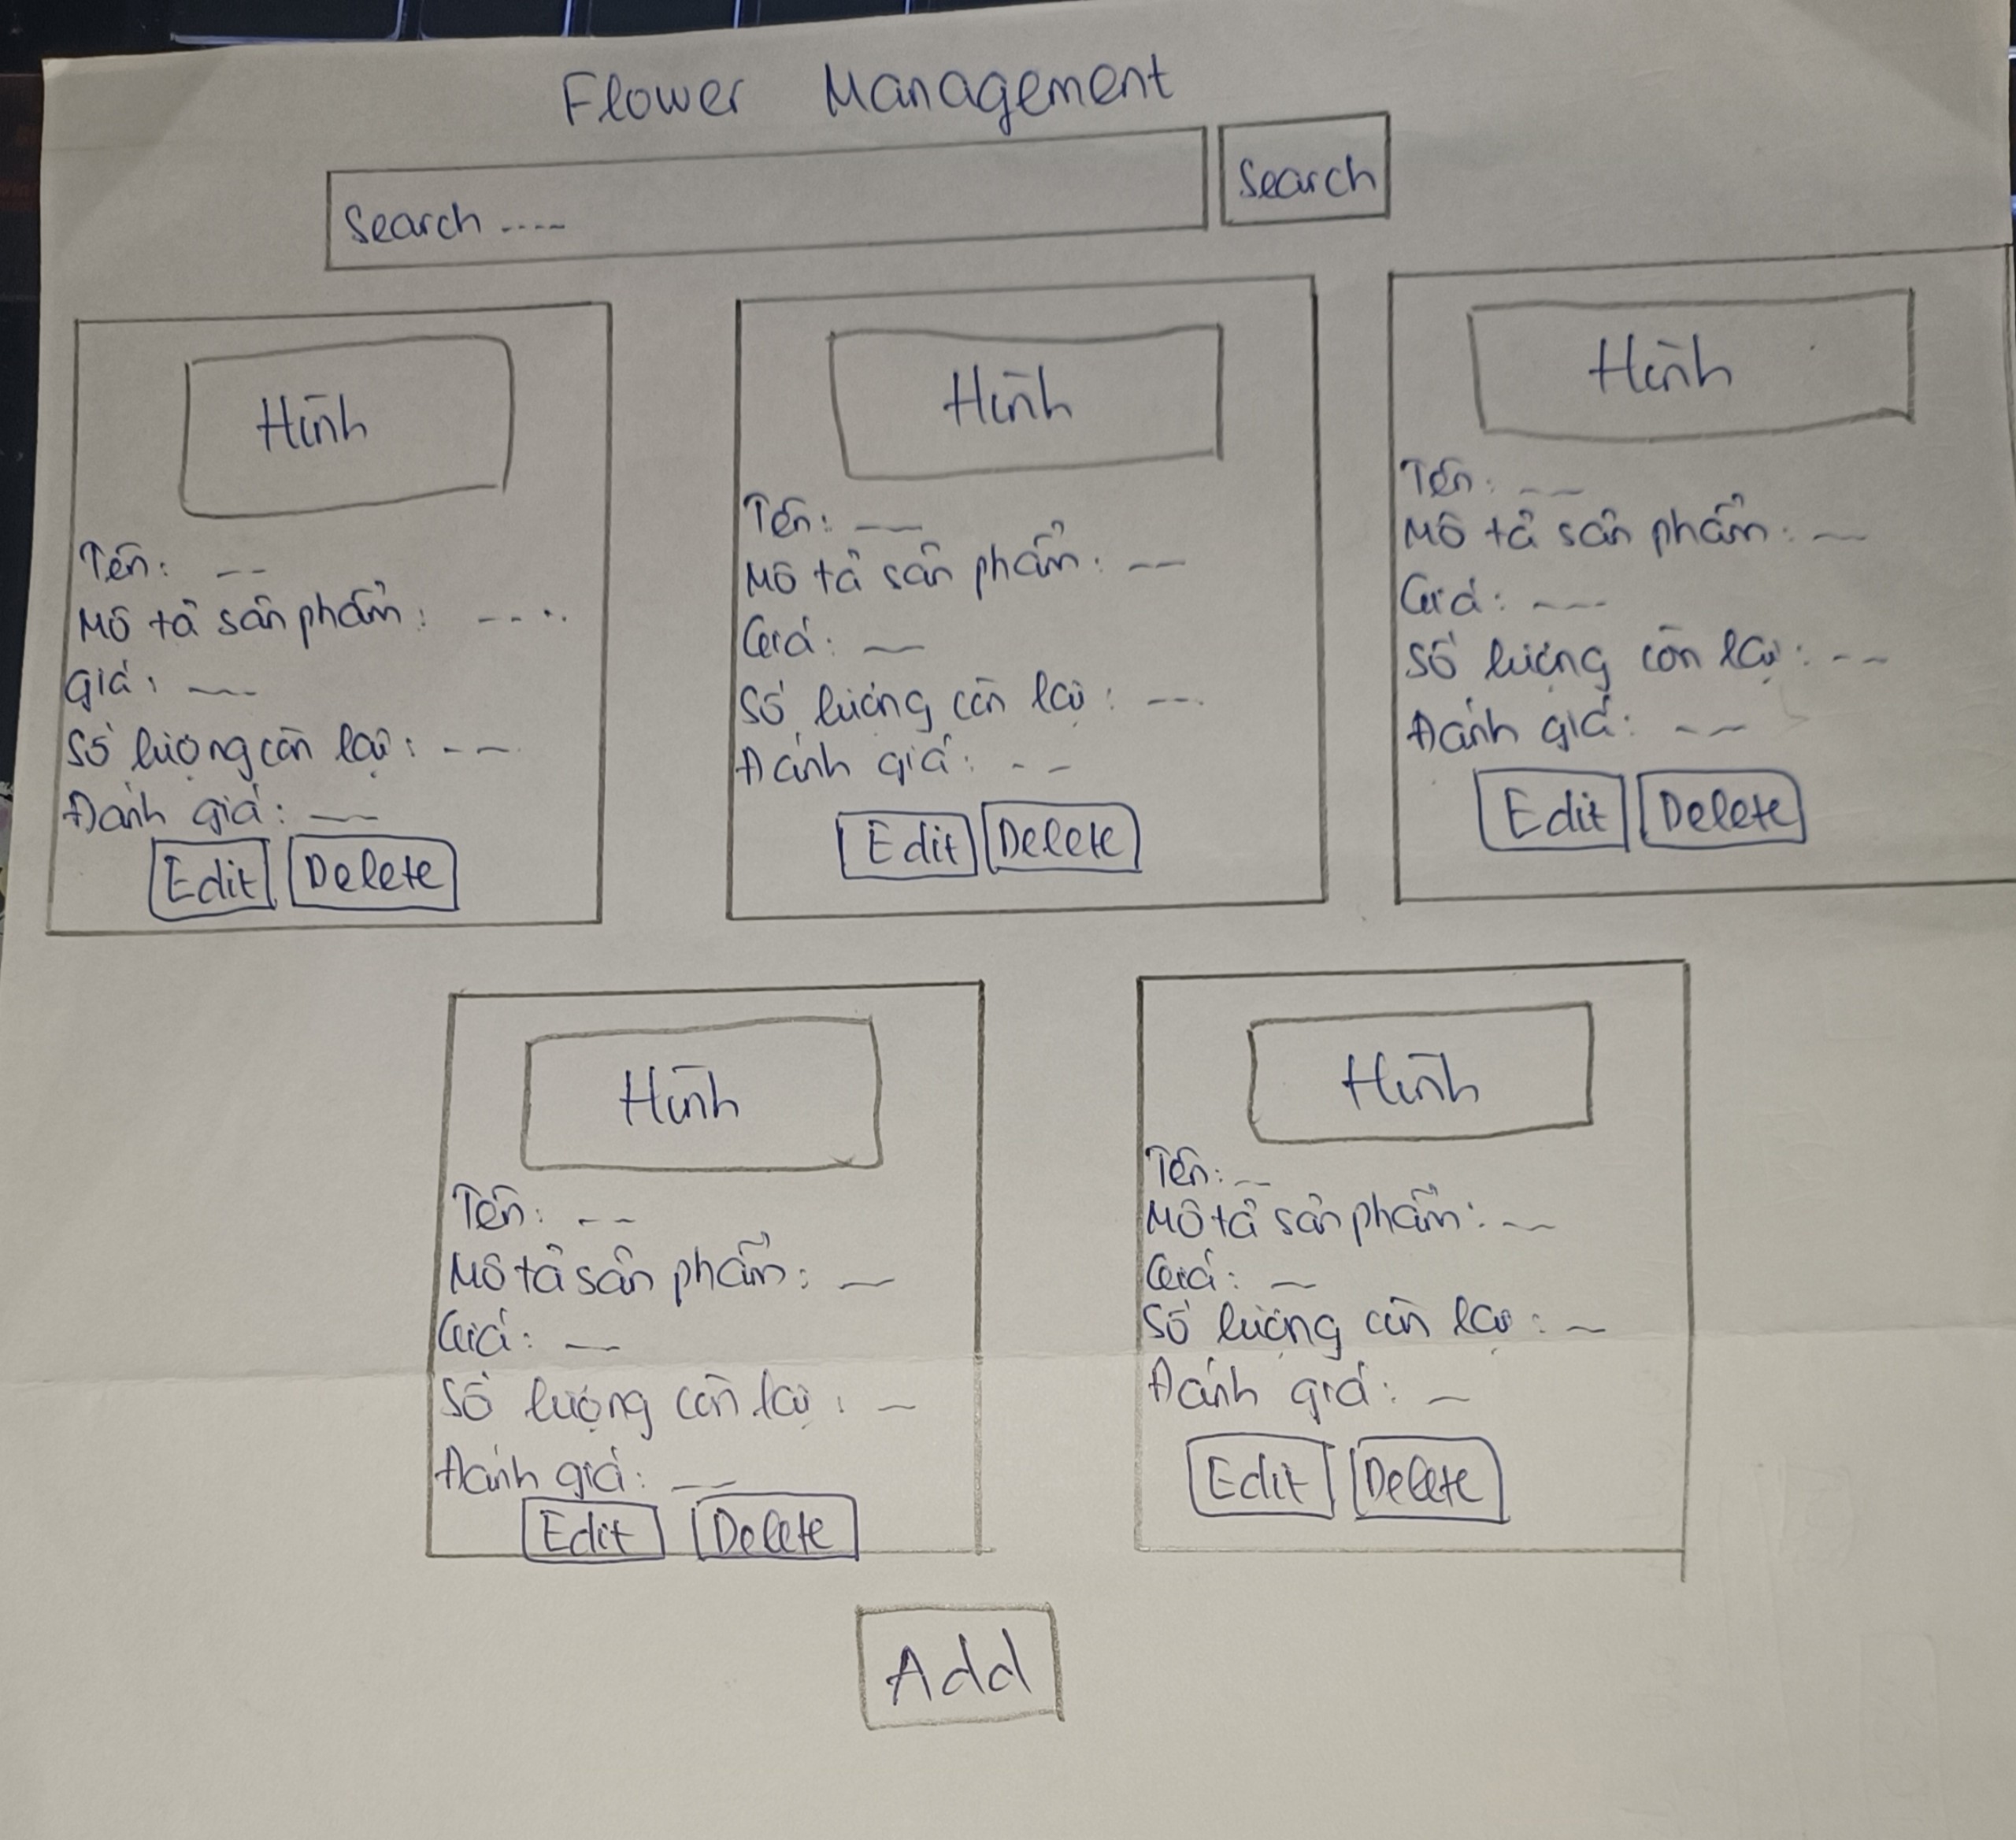 Flower Management
Search ....
Search
Hình
Tên: --
Mô tả sản phẩm: ----
giá: ---
Số lượng còn lại: --
Đánh giá: --
Edit
Delete
Hình
Tên: --
Mô tả sản phẩm: --
Giá: --
Số lượng còn lại: ---
Đánh giá: --
Edit
Delete
Hình
Tên: --
Mô tả sản phẩm: --
Giá: ---
Số lượng còn lại: ---
Đánh giá: --
Edit
Delete
Hình
Tên: --
Mô tả sản phẩm: --
Giá: --
Số lượng còn lại: --
Đánh giá: --
Edit
Delete
Hình
Tên: --
Mô tả sản phẩm: --
Giá: --
Số lượng còn lại: --
Đánh giá: --
Edit
Delete
Add